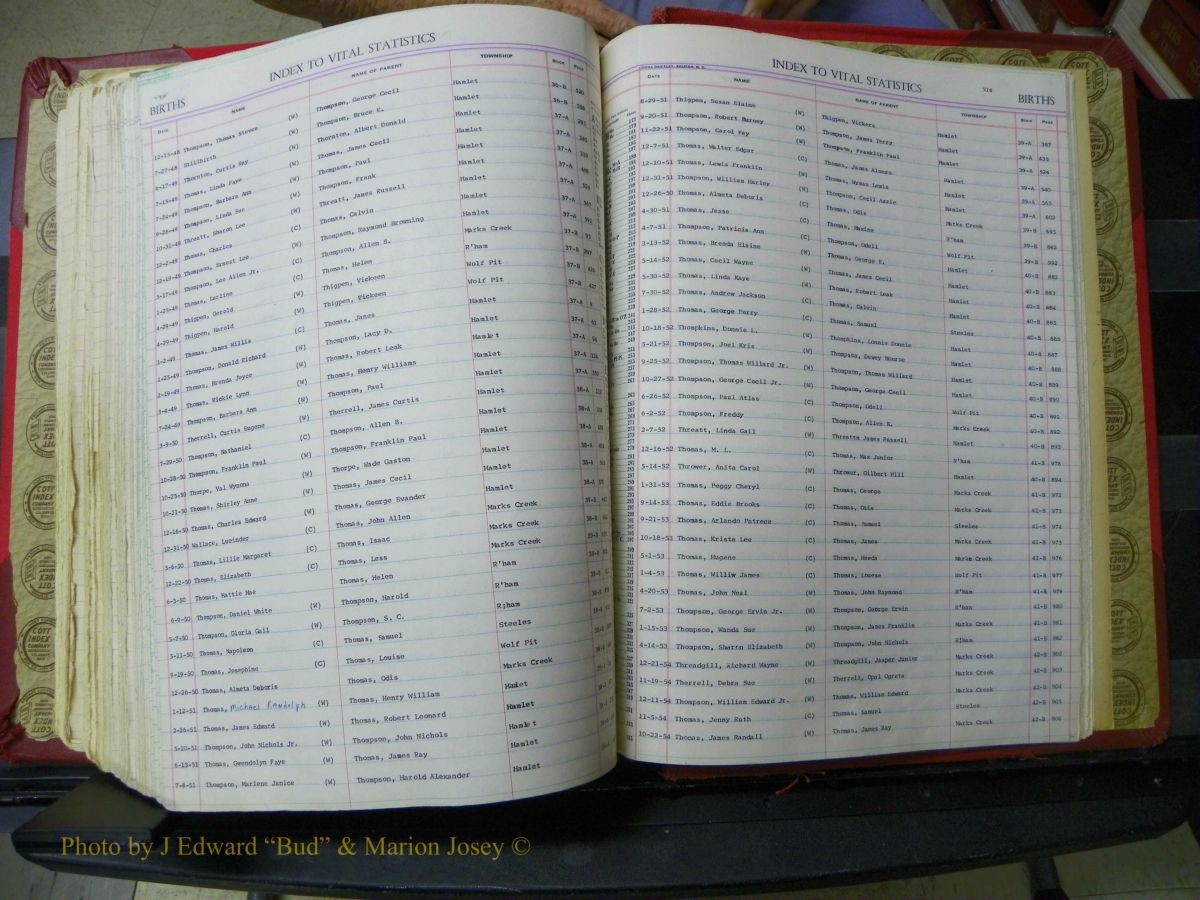 INDEX TO VITAL STATISTICS
BIRTHS
Date NAME NAME OF PARENT TOWNSHIP Book Page
12-15-48 Thompson, Thomas Steven (W) Thompson, George Cecil Hamlet 36-B 520
7-27-48 Stillbirth (W) Thompson, Bruce E. Hamlet 36-B
8-17-49 Thornton, Curtis Ray (W) Thornton, Albert Donald Hamlet 37-A
7-15-49 Thomas, Linda Faye (W) Thomas, James Cecil Hamlet 37-A
7-24-49 Thompson, Barbara Ann (W) Thompson, Paul Hamlet 37-A
9-28-49 Thompson, Linda Sue (W) Thompson, Frank Hamlet 37-A
10-31-49 Threatt, Sharon Lee (W) Threatt, James Russell Hamlet 37-A
12-2-49 Thomas, Charles (C) Thomas, Calvin Hamlet 37-A
12-19-49 Thompson, Ernest Lee (W) Thompson, Raymond Browning Marks Creek 37-B
3-17-49 Thompson, Lee Allen Jr. (C) Thompson, Allen S. R'ham 37-B
1-23-49 Thomas, Lurline (C) Thomas, Helen Wolf Pit 37-B
4-29-49 Thigpen, Gerold (W) Thigpen, Vickeen Wolf Pit 37-B
4-29-49 Thigpen, Harold (W) Thigpen, Vickeen Hamlet 37-A
1-2-49 Thomas, James Willis (C) Thomas, James Hamlet 37-A
1-25-49 Thompson, Donald Richard (W) Thompson, Lacy D. Hamlet 37-A
2-19-49 Thomas, Brenda Joyce (W) Thomas, Robert Leak Hamlet 37-A
3-4-49 Thomas, Vickie Lynn (W) Thomas, Henry Williams Hamlet 37-A
7-24-49 Thompson, Barbara Ann (W) Thompson, Paul Hamlet 38-A
3-9-50 Therrell, Curtis Eugene (W) Therrell, James Curtis Hamlet 38-A
7-29-50 Thompson, Nathaniel (C) Thompson, Allen B. Hamlet 38-A
10-28-50 Thompson, Franklin Paul (W) Thompson, Franklin Paul Hamlet 38-A
10-25-50 Thorpe, Val Wynona (W) Thorpe, Wade Gaston Hamlet 38-A
10-21-50 Thomas, Shirley Anne (W) Thomas, James Cecil Hamlet
12-16-50 Thomas, Charles Edward (W) Thomas, George Evander Marks Creek
12-31-50 Wallace, Lurinder (C) Thomas, John Allen Marks Creek
5-6-50 Thomas, Lillie Margaret (C) Thomas, Isaac Marks Creek
12-22-50 Thomas, Elizabeth (C) Thomas, Less R'ham
6-3-50 Thomas, Hattie Mae Thomas, Helen R'ham
6-9-50 Thompson, Daniel White (W) Thompson, Harold R;ham
5-7-50 Thompson, Gloria Gail (W) Thompson, S. C. Steeles
5-11-50 Thomas, Napoleon (C) Thomas, Samuel Wolf Pit
9-19-50 Thomas, Josephine (C) Thomas, Louise Marks Creek
12-26-50 Thomas, Almeta Deboris Thomas, Odis Hamlet
1-12-51 Thomas, Michael Randolph (W) Thomas, Henry William Hamlet
2-26-51 Thomas, James Edward (W) Thomas, Robert Leonard Hamlet
5-20-51 Thompson, John Nichols Jr. (W) Thompson, John Nichols Hamlet
6-13-51 Thomas, Gwendolyn Faye (W) Thomas, James Ray Hamlet
7-8-51 Thompson, Marlene Janice (W) Thompson, Harold Alexander Hamlet
INDEX TO VITAL STATISTICS 314
BIRTHS
Date NAME NAME OF PARENT TOWNSHIP Book Page
8-29-51 Thigpen, Susan Elaine (W) Thigpen, Vickers Hamlet 39-A 387
9-20-51 Thompson, Robert Burney (W) Thompson, James Terry Hamlet 39-A 435
11-22-51 Thompson, Carol Fay (W) Thompson, Franklin Paul Hamlet 39-A 524
12-7-51 Thomas, Walter Edgar (C) Thomas, James Alonzo Hamlet 39-A 540
12-10-51 Thomas, Lewis Franklin (W) Thomas, Hyman Lewis Hamlet 39-A 565
12-31-51 Thompson, William Harley (W) Thompson, Cecil Azzie Hamlet 39-A 602
12-26-50 Thomas, Almeta Deboris (C) Thomas, Odis Marks Creek 39-B 695
4-30-51 Thomas, Jesse (C) Thomas, Maxine R'ham 39-B 862
4-7-51 Thompson, Patricia Ann (C) Thompson, Odell Wolf Pit 39-B 992
3-13-52 Thomas, Brenda Elaine (W) Thomas, George E. Hamlet 40-B 882
5-14-52 Thomas, Cecil Wayne (W) Thomas, James Cecil Hamlet 40-B 883
5-30-52 Thomas, Linda Kaye (W) Thomas, Robert Leak Hamlet 40-B 884
7-30-52 Thomas, Andrew Jackson (C) Thomas, Calvin Hamlet 40-B 885
1-28-52 Thomas, George Perry (C) Thomas, Samuel Steeles 40-B 886
10-18-52 Thompkins, Donnie L. (W) Thompkins, Lonnie Donnie Hamlet 40-B 887
5-21-52 Thompson, Joel Kris (W) Thompson, Dewey Monroe Hamlet 40-B 888
9-25-52 Thompson, Thomas Willard Jr. (W) Thompson, Thomas Willard Hamlet 40-B 889
10-27-52 Thompson, George Cecil Jr. (W) Thompson, George Cecil Hamlet 40-B 890
6-26-52 Thompson, Paul Atlas (C) Thompson, Odell Wolf Pit 40-B 891
6-2-52 Thompson, Freddy (C) Thompson, Allen R. Marks Creek 40-B 892
2-7-52 Threatt, Linda Gail (W) Threatta James Russell Hamlet 40-B 893
12-16-52 Thomas, M. L. (C) Thomas, Max Junior R'ham 41-B 978
5-14-52 Thrower, Anita Carol (W) Thrower, Gilbert Hill Hamlet 40-B 894
1-31-53 Thomas, Peggy Cheryl (C) Thomas, George Marks Creek 41-B 972
9-14-53 Thomas, Eddie Brooks (C) Thomas, Otis Marks Creek 41-B 973
9-21-53 Thomas, Arlando Patrece (C) Thomas, Samuel Steeles 41-B 974
10-18-53 Thomas, Krista Lee (C) Thomas, James Marks Creek 41-B 975
5-1-53 Thomas, Eugene (C) Thomas, Heeda Marks Creek 41-B 976
1-4-53 Thomas, Williw James (C) Thomas, Louese Wolf Pit 41-B 977
4-20-53 Thomas, John Neal (W) Thomas, John Raymond R'ham 41-B 979
7-2-53 Thompson, George Ervin Jr. (W) Thompson, George Ervin R'ham 41-B 980
1-15-53 Thompson, Wanda Sue (W) Thompson, James Franklin Marks Creek 41-B 981
4-14-53 Thompson, Sharrn Elizabeth (W) Thompson, John Nichols R;ham 41-B 982
12-21-54 Threadgill, Richard Wayne (W) Threadgill, Jasper Junior Marks Creek 42-B 902
11-19-54 Therrell, Debra Sue (W) Therrell, Opal Ogreta Marks Creek 42-B 903
12-11-54 Thompson, William Edward Jr. (W) Thomas, William Edward Marks Creek 42-B 904
11-5-54 Thomas, Jenny Ruth (C) Thomas, Samuel Steeles 42-B 905
10-22-54 Thomas, James Randall (W) Thomas, James Ray Marks Creek 42-B 906
COTT INDEX COMPANY
Photo by J Edward “Bud” & Marion Josey ©